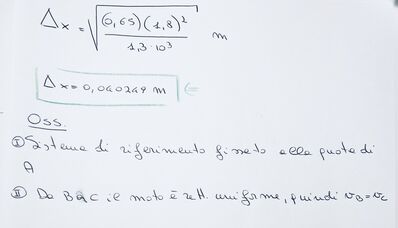 Δx = √((0,65)(1,8)² / 1,3·10³) m
Δx = 0,040249 m ⇐
Oss.
① Sistema di riferimento fissato alla quota di
A
② Da B a C il moto è rett. uniforme, quindi v_B = v_C